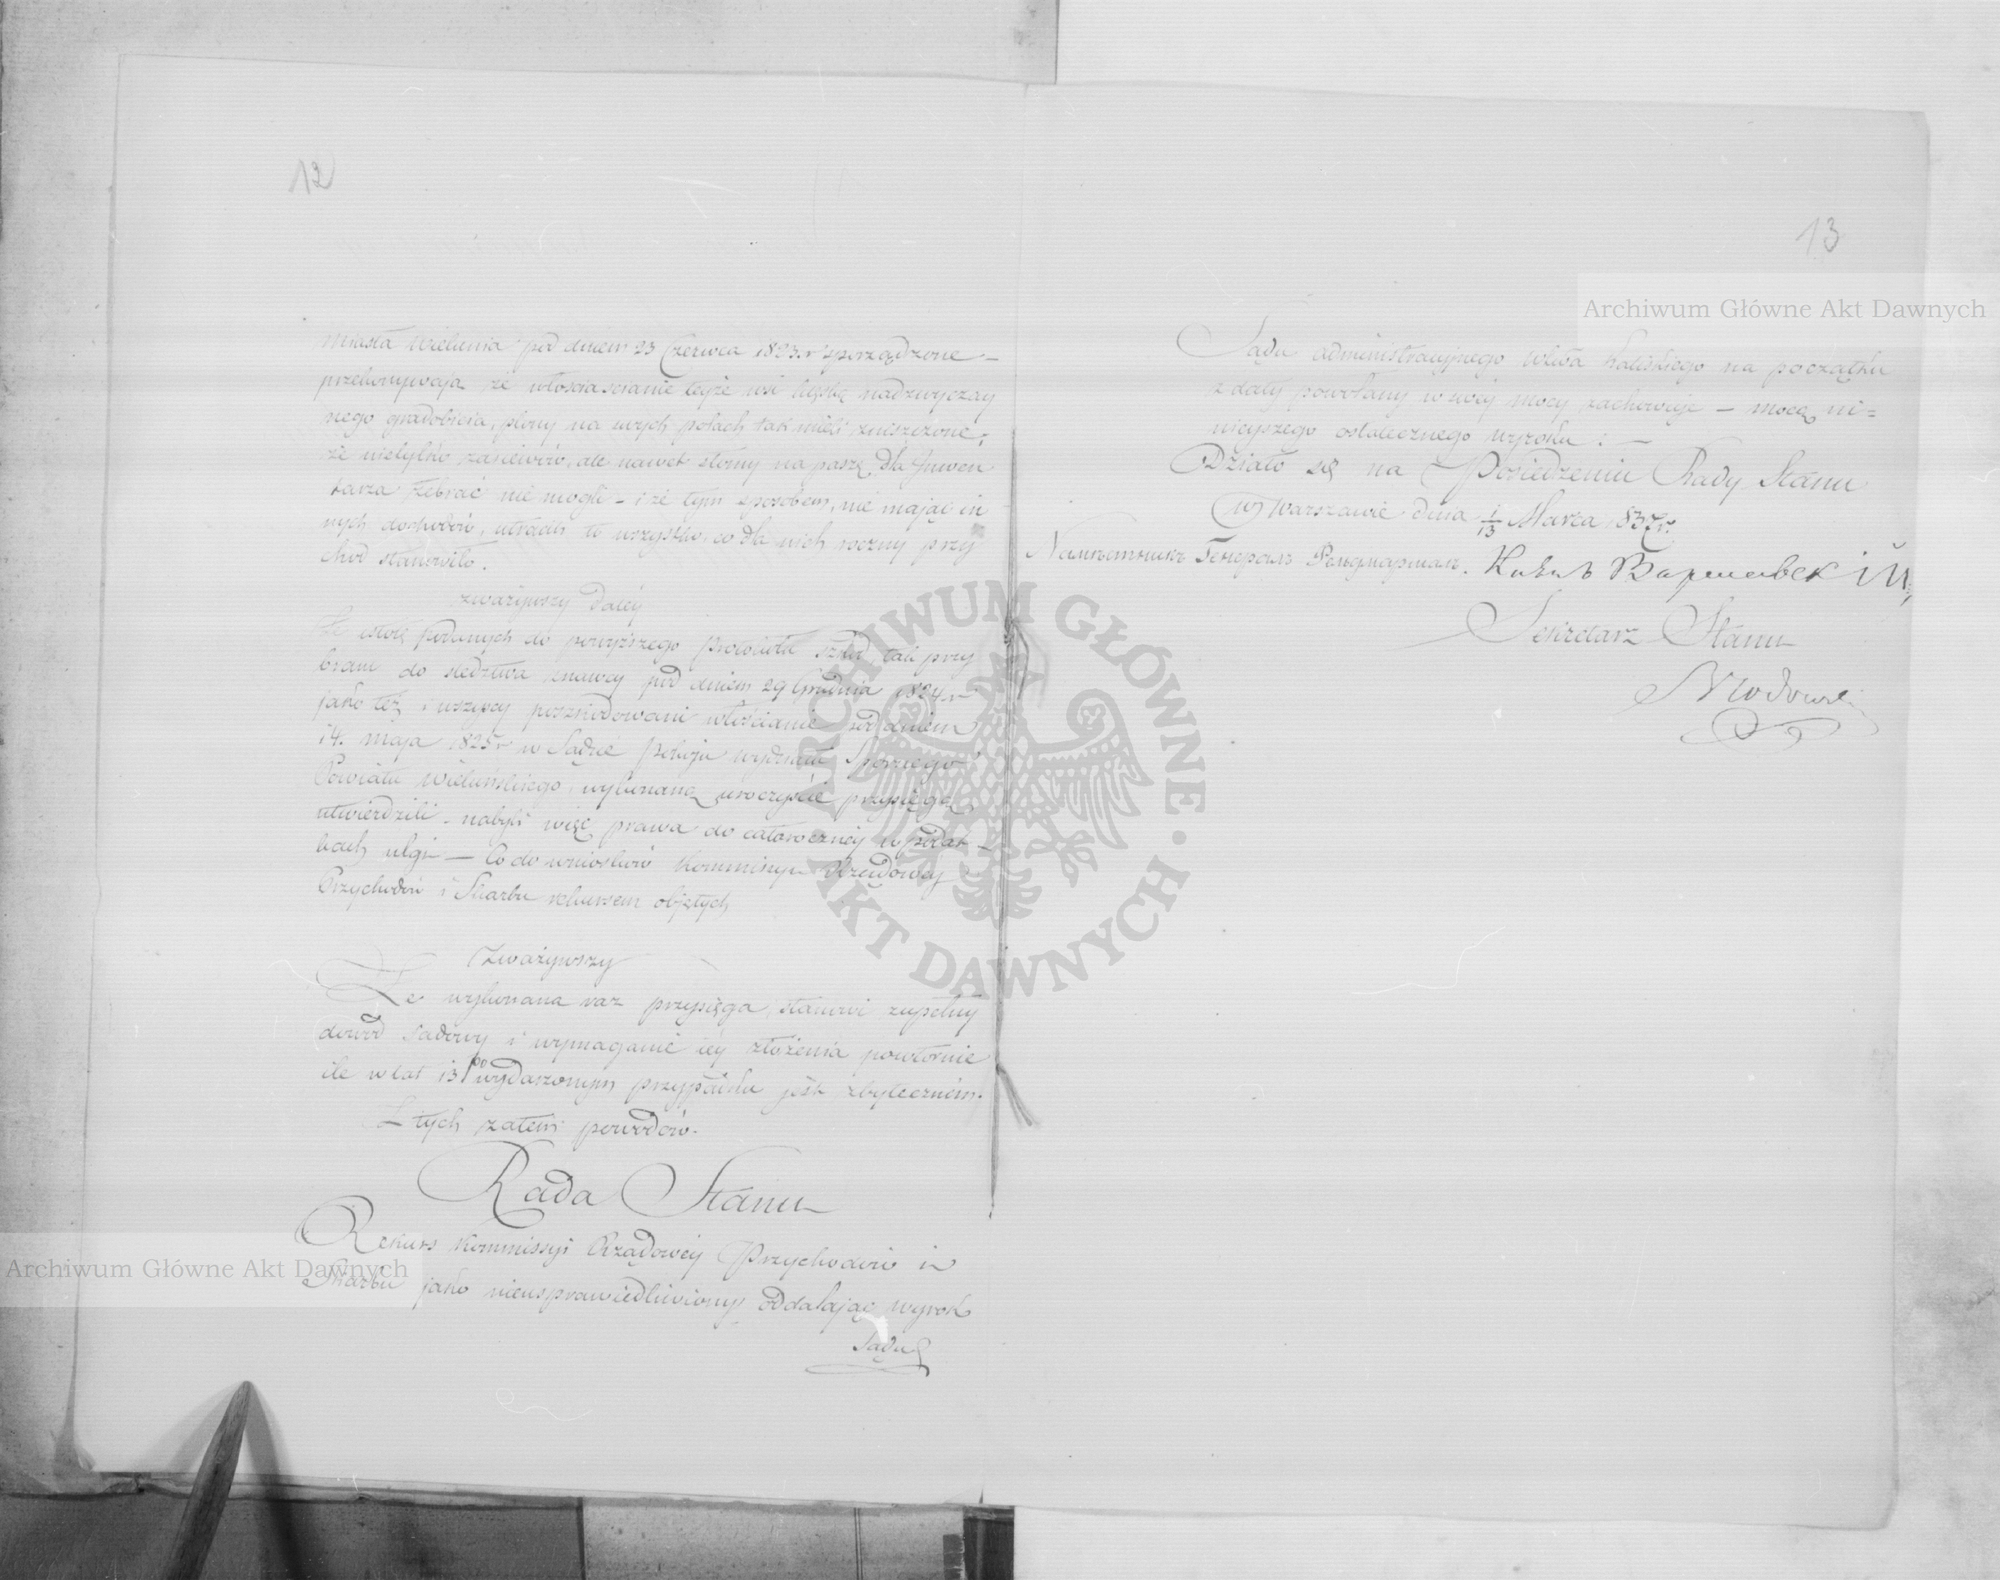 12
miasta Wielunia pod dniem 23 Czerwca 1823. r. sporządzone
przekonywają że włościascianie tejże wsi klęską nadzwyczay
nego gradobicia, plony na swych polach tak mieli zniszczone,
że nietylko zasiewów, ale nawet słomy na paszę dla Inwen
tarza zebrać nie mogli – i że tym sposobem, nie mając in
nych dochodów, utracili to wszystko, co dla nich roczny przy
chód stanowiło.
zważywszy daléy
Że podanych do powyższego Protokułu szkód, tak przy
brani do śledztwa znawcy pod dniem 29 Grudnia 1824 r.
jako téż i wszyscy poszkodowani włościanie pod dniem
14. maja 1825 r w Sądzie Pokoju wydziału Spornego
Powiatu Wieluńskiego, wykonaną uroczyście przysięgą
utwierdzili – nabyli więc prawa do całorocznéy w podat –
kach ulgi — Co do wniosków Kommissyi Rządowéy
Przychodów i Skarbu rekursem objętych
Zważywszy
Że wykonana raz przysięga, stanowi zupełny
dowód sadowy i wymaganie iéy złożenia powtórnie
ile w lat 13 po wydarzonym przypadku jest zbyteczném.
Z tych zatem powodów.
Rada Stanu
Rekurs Kommissyi Rządowéy Przychodów i
Skarbu jako nieusprawiedliwiony oddalając wyrok
Sądu
13
Sądu administracyjnego wdztwa Kaliskiego na początku
z daty powołany w swéj mocy zachowuje – mocą ni=
nieyszego ostatecznego wyroku: —
Działo się na Posiedzeniu Rady Stanu
w Warszawie dnia 1/13 Marca 1837 r.
Намѣстникъ Генералъ Фельдмаршалъ. Князь Варшавскій
Sekretarz Stanu
Archiwum Główne Akt Dawnych
Archiwum Główne Akt Dawnych
ARCHIWUM GŁÓWNE · AKT DAWNYCH ·